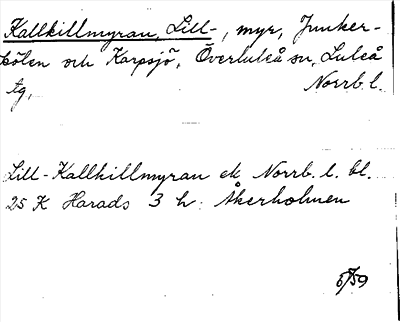 Kallkillmyran, Lill-, myr, Junker-
kölen och Karpsjö, Överluleå sn, Luleå
tg, Norrb. l.
Lill-Kallkillmyran ek Norrb. l. bl.
25 K Harads 3 h: Åkerholmen
59